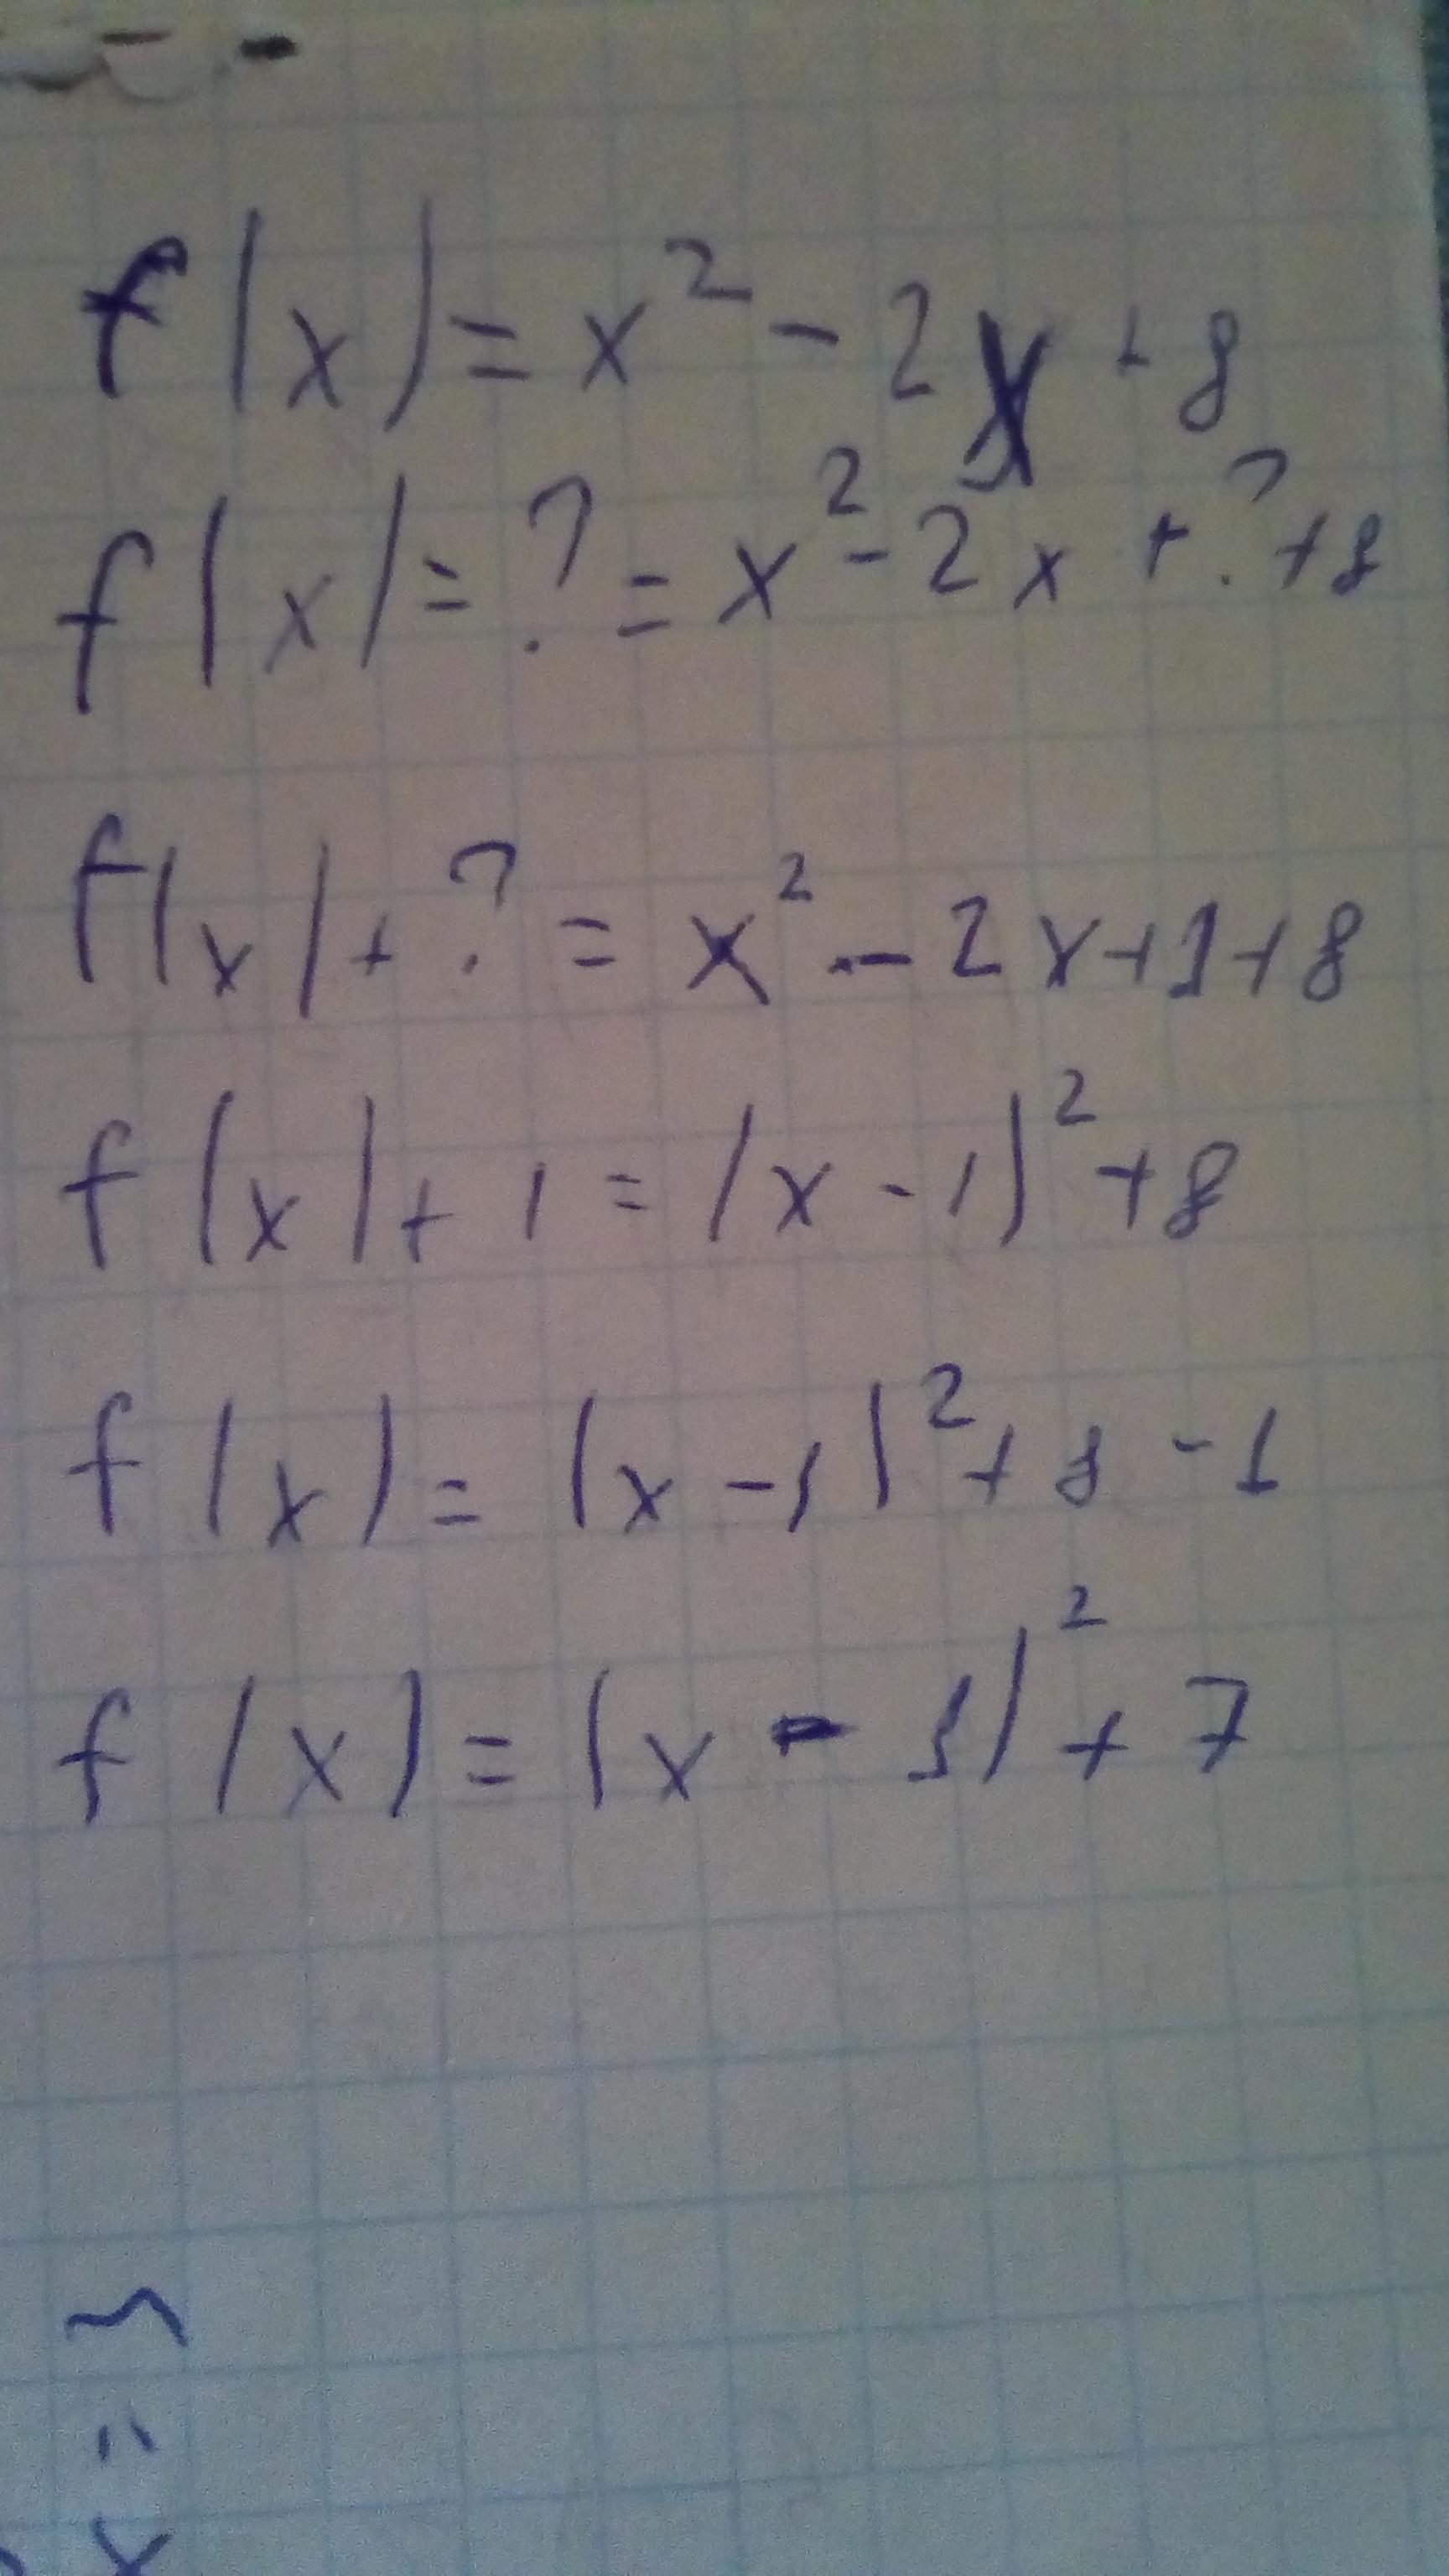 f(x) = x² - 2x + 8
f(x) = ? = x² - 2x + ? + 8
f(x) + ? = x² - 2x + 1 + 8
f(x) + 1 = (x - 1)² + 8
f(x) = (x - 1)² + 8 - 1
f(x) = (x - 1)² + 7